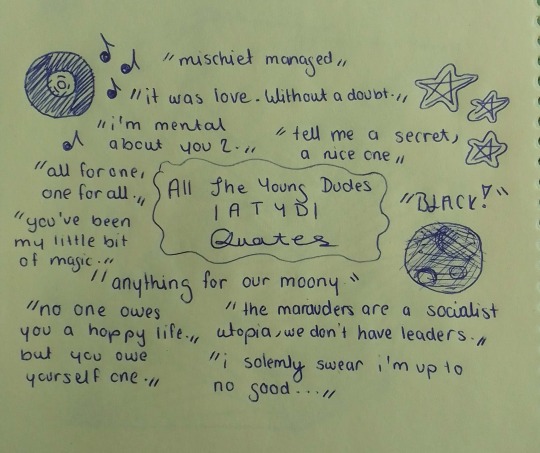 "mischief managed„
"it was love. Without a doubt.„
"i'm mental
about you 2.„
"tell me a secret,
a nice one„
"all for one,
one for all.„
All The Young Dudes
|ATYD|
Quotes
"BLACK!"
"you've been
my little bit
of magic.„
"anything for our moony."
"no one owes
you a happy life.„
but you owe
yourself one.„
"the marauders are a socialist
utopia, we don't have leaders.„
"i solemly swear i'm up to
no good...„